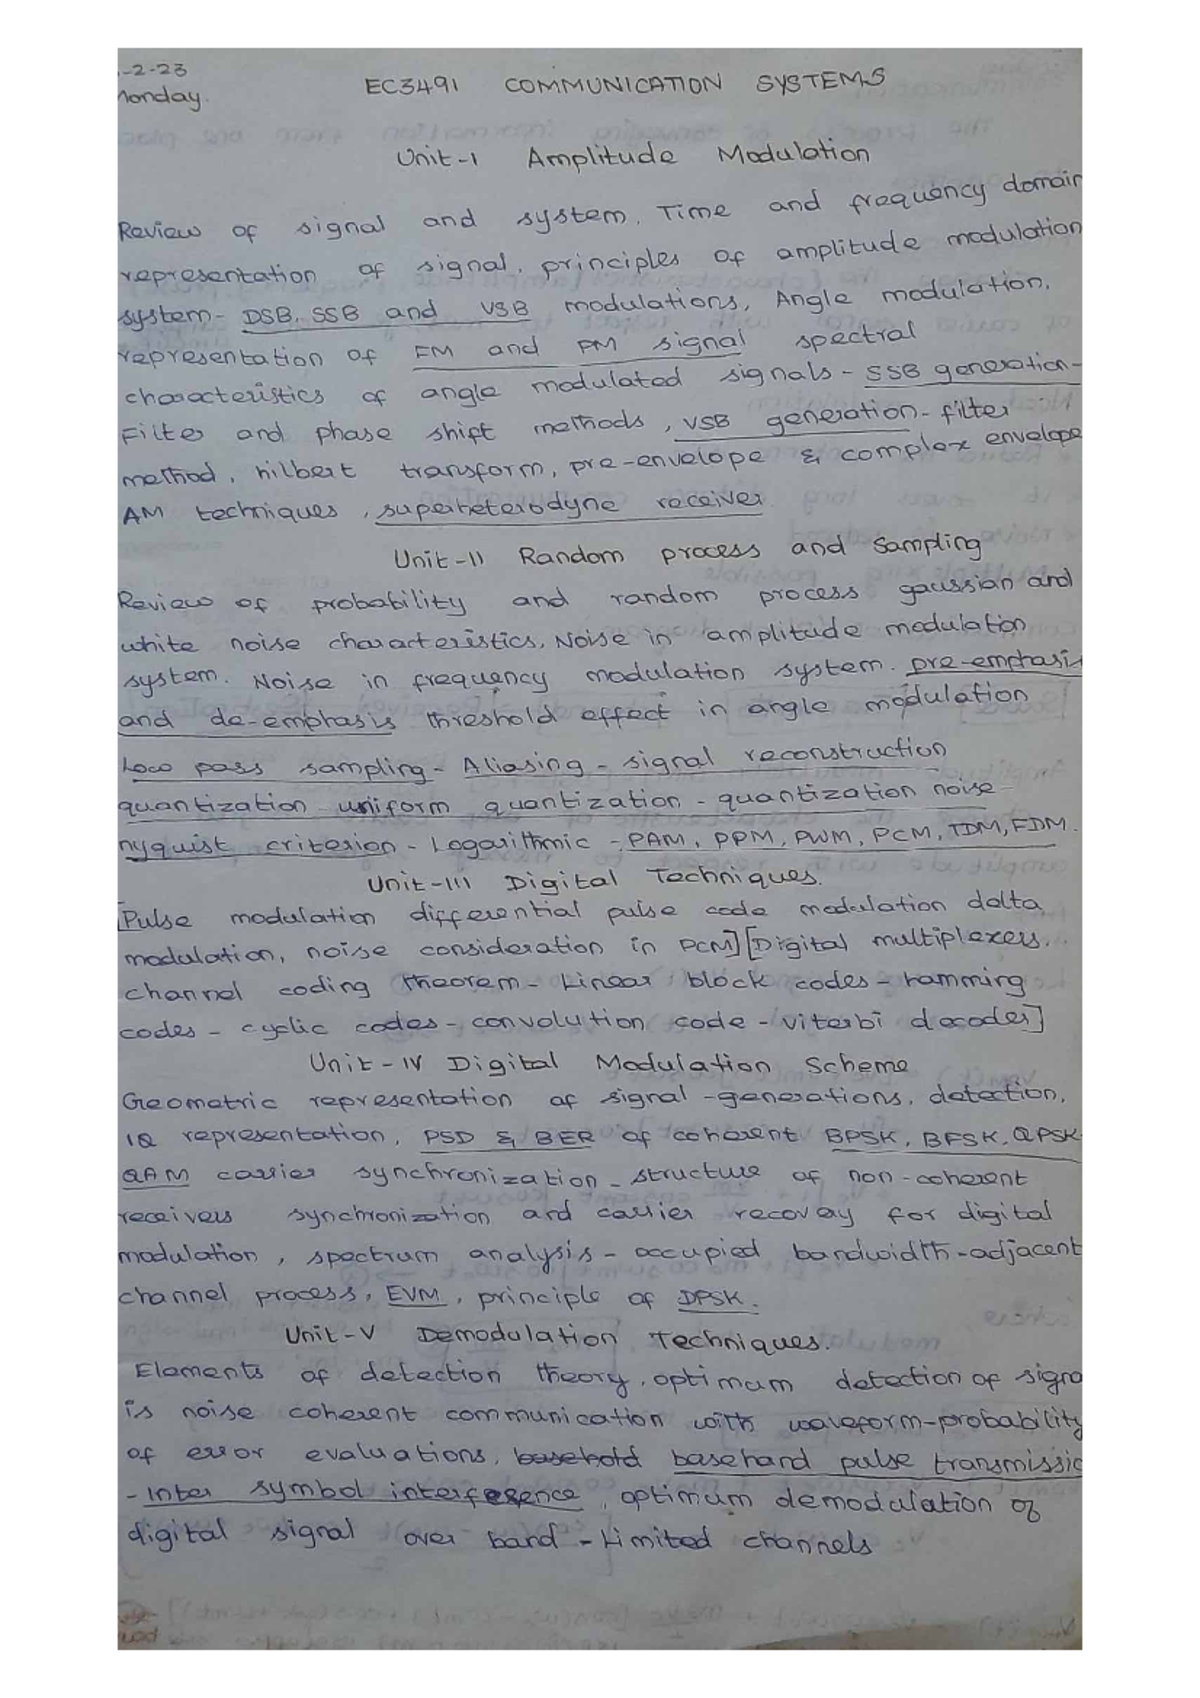 -2-23
Monday.
EC3491 COMMUNICATION SYSTEMS
Unit-I Amplitude Modulation
Review of signal and system. Time and frequency domain
representation of signal. principles of amplitude modulation
system- DSB, SSB and VSB modulations, Angle modulation.
representation of FM and PM signal spectral
characteristics of angle modulated signals- SSB generation-
Filter and phase shift methods, VSB generation- filter
method, hilbert transform, pre-envelope & complex envelope
AM techniques, superheterodyne receiver
Unit-II Random process and Sampling
Review of probability and random process gaussian and
white noise characteristics, Noise in amplitude modulation
system. Noise in frequency modulation system. pre-emphasis
and de-emphasis threshold effect in angle modulation
Low pass sampling- Aliasing- signal reconstruction
quantization uniform quantization - quantization noise-
nyquist criterion - Logarithmic - PAM, PPM, PWM, PCM, TDM, FDM.
Unit-III Digital Techniques.
[Pulse modulation differential pulse code modulation delta
modulation, noise consideration in PCM][Digital multiplexers.
channel coding theorem- Linear block codes- hamming
codes - cyclic codes- convolution code - viterbi decoder]
Unit-IV Digital Modulation Scheme
Geometric representation of signal -generations, detection,
IQ representation, PSD & BER of coherent BPSK, BFSK, QPSK
QAM carrier synchronization - structure of non-coherent
receivers synchronization and carrier recovery for digital
modulation, spectrum analysis- occupied bandwidth-adjacent
channel process, EVM, principle of DPSK.
Unit-V Demodulation Techniques.
Elements of detection theory, optimum detection of signa
is noise coherent communication with waveform-probability
of error evaluations, baseband pulse transmissio
-Inter symbol interference, optimum demodulation of
digital signal over band-limited channels